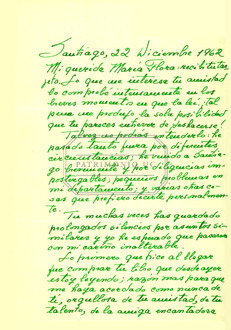 Santiago, 22 Diciembre 1962
Mi querida María Flora: recibí tu tar
jeta. Lo que me interesa tu amistad
lo comprobé intensamente en los
breves momentos en que la leí; tal
pena me produjo la sola posibilidad
que tu pareces entrever de perderse!
Talvez no podías entenderlo: he
pasado tanto fuera por diferentes
circunstancias; he venido a Santia
go brevemente y por diligencias im-
postergables; pequeños problemas en
mi departamento; y varias otras co-
sas que prefiero decirte personalmen-
te.
Tu muchas veces has guardado
prolongados silencios por asuntos si-
milares y yo he esperado que pasaran
con mi cariño inalterable.
Lo primero que hice al llegar
fue comprar tu libro que desde ayer
estoy leyendo; razón mas para que
me haya acordado como nunca de
ti, orgullosa de tu amistad, de tu
talento, de la amiga encantadora
PATRIMONIO